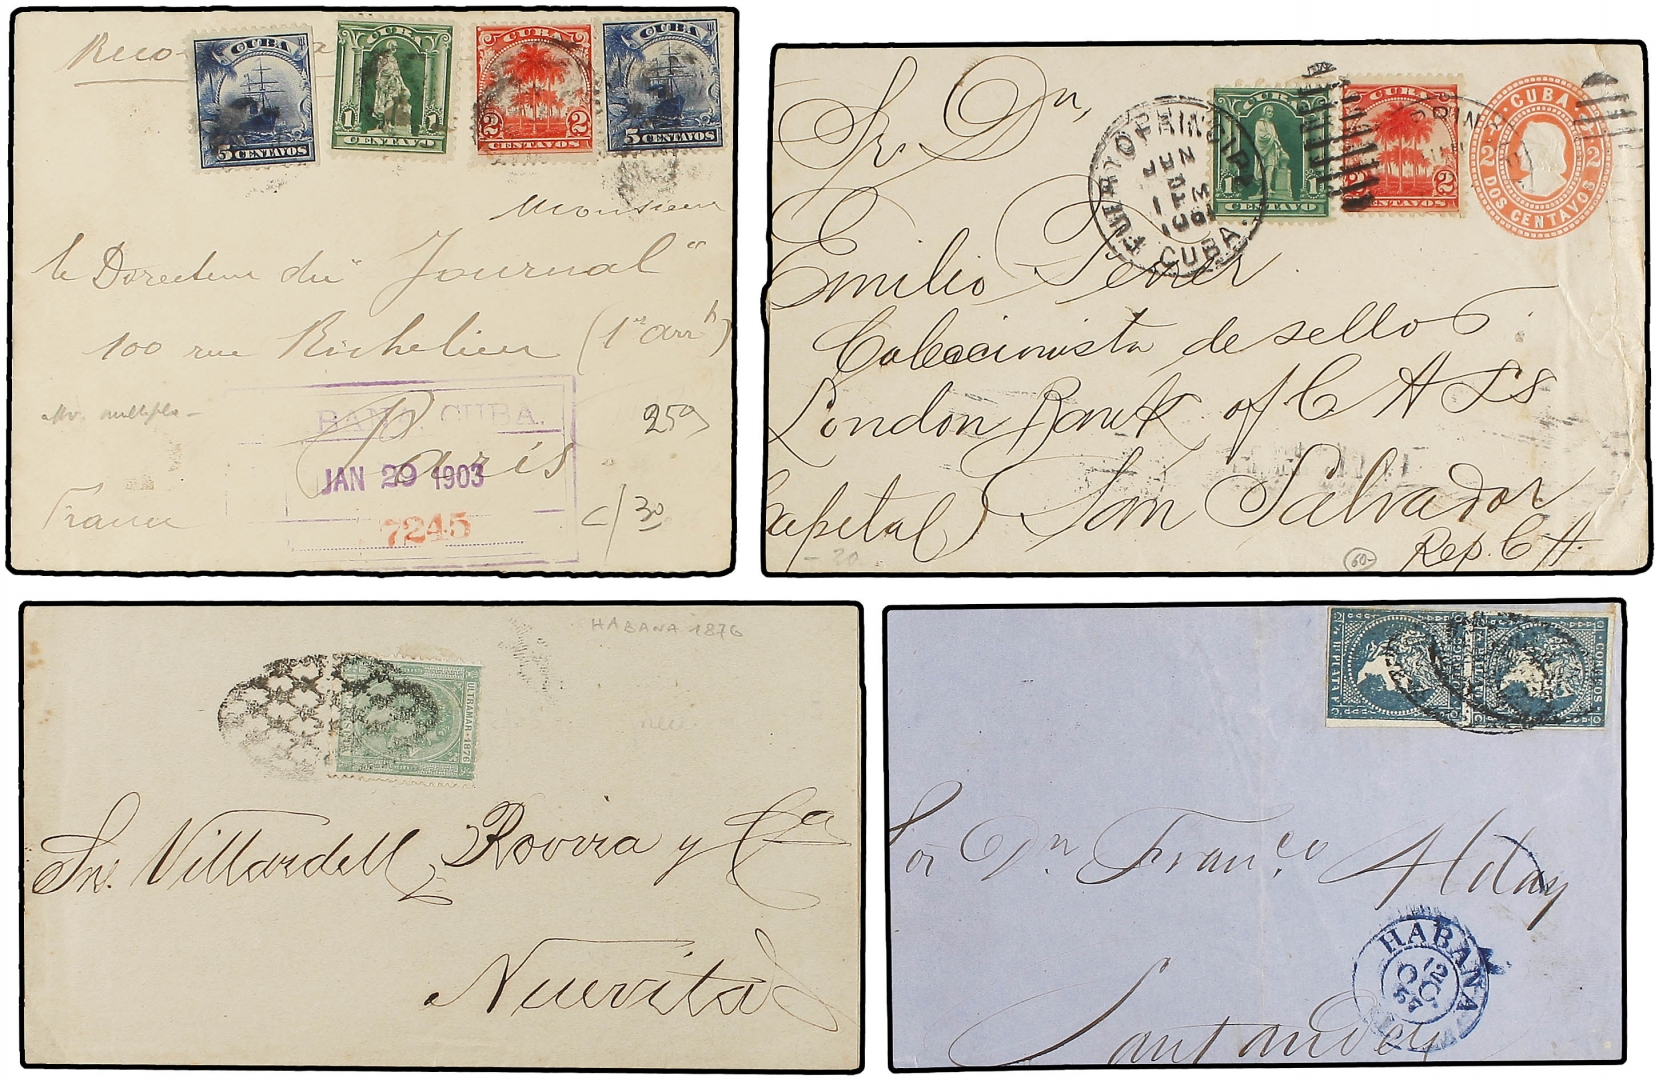 CUBA
5 CENTAVOS
CUBA
1 1
CENTAVO
CUBA
2 2
CENTAVOS
CUBA
5 CENTAVOS
Monsieur
le Directeur du "Journal"
100 rue Richelieu (1er arrt)
Paris
France
BANA, CUBA.
JAN 29 1903
7245
259
c/30
Sr. Dn,
Emilio Ferrer
Coleccionista de sellos.
London Bank of C A Ls
Capital) San Salvador
Rep. C A.
PUERTO PRINCIPE
JAN
1 PM
CUBA.
CUBA
1
CENTAVO
CUBA
2
CENTAVOS
CUBA
2 2
DOS CENTAVOS
20
60-
HABANA 1876
ULTRAMAR-1876
Sres. Villardell, Rovira y Ca
Nuevitas
CORREOS
Rl PLATA F
Sor Dn Franco. Alday
Santander
HABANA